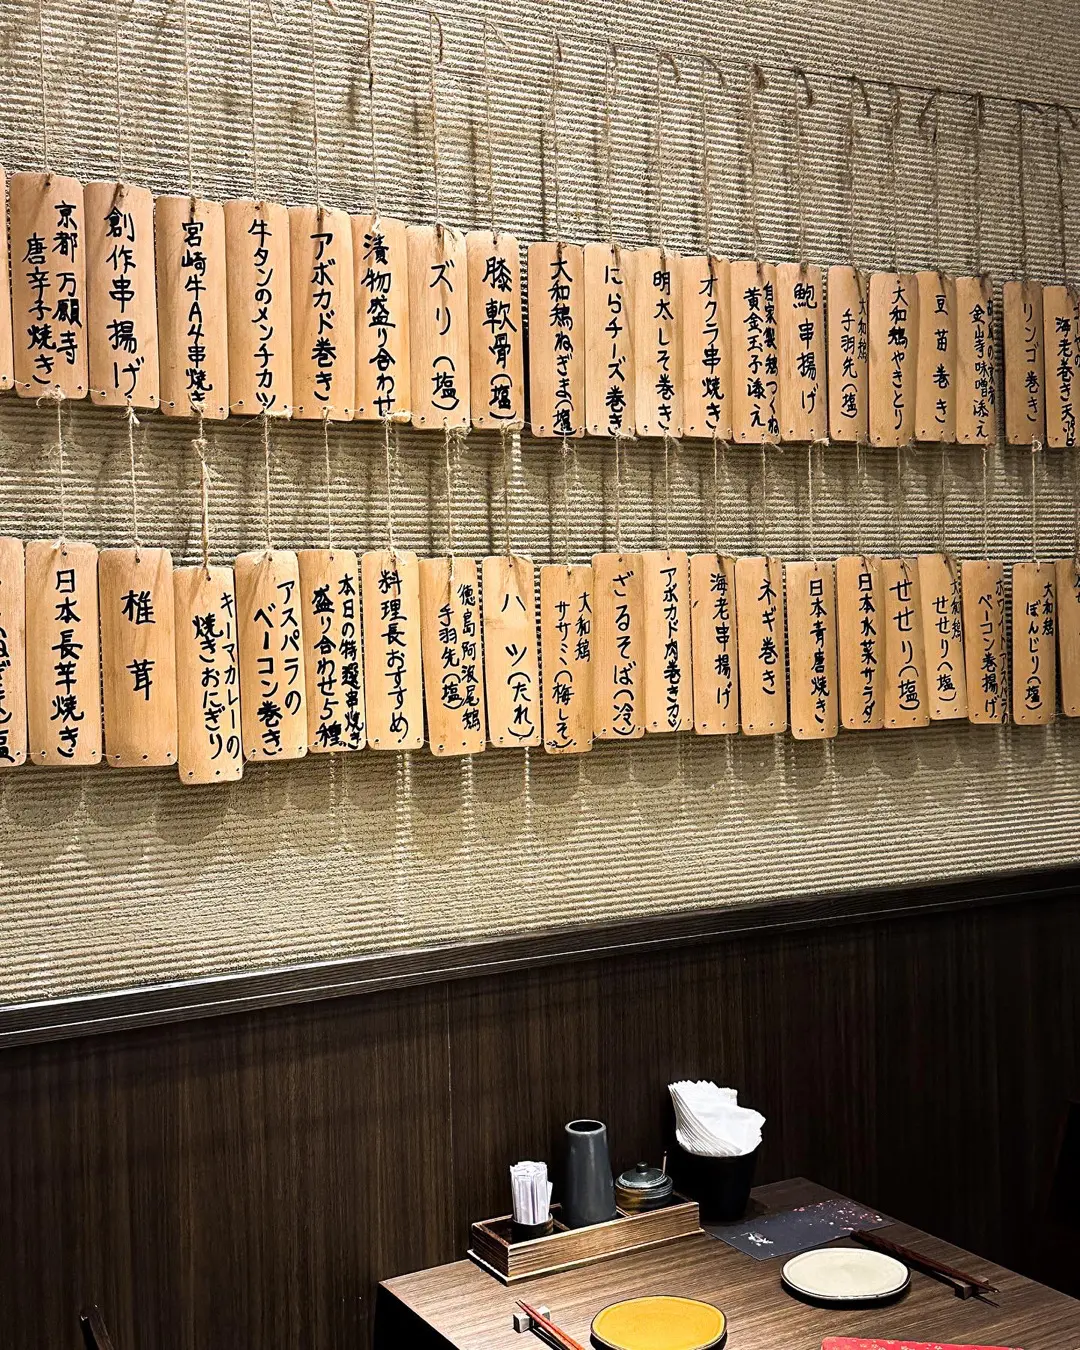 京都万願寺
唐辛子焼き
創作串揚げ
宮崎牛A4串焼き
牛タンのメンチカツ
アボカド巻き
漬物盛り合わせ
ズリ(塩)
膝軟骨(塩)
大和鶏ねぎま(塩)
にらチーズ巻き
明太しそ巻き
オクラ串焼き
自家製鶏つくね
黄金玉子添え
鮑串揚げ
大和鶏
手羽先(塩)
大和鶏やきとり
豆苗巻き
金山寺味噌添え
リンゴ巻き
海老巻き
日本長芋焼き
椎茸
キーマカレーの
焼きおにぎり
アスパラの
ベーコン巻き
本日の特選串焼き
盛り合わせ5種
料理長おすすめ
徳島阿波尾鶏
手羽先(塩)
ハツ(たれ)
大和鶏
ササミ(梅しそ)
ざるそば(冷)
アボカド肉巻きカツ
海老串揚げ
ネギ巻き
日本青唐焼き
日本水菜サラダ
せせり(塩)
大和鶏
せせり(塩)
ホワイトアスパラの
ベーコン巻揚げ
大和鶏
ぼんじり(塩)